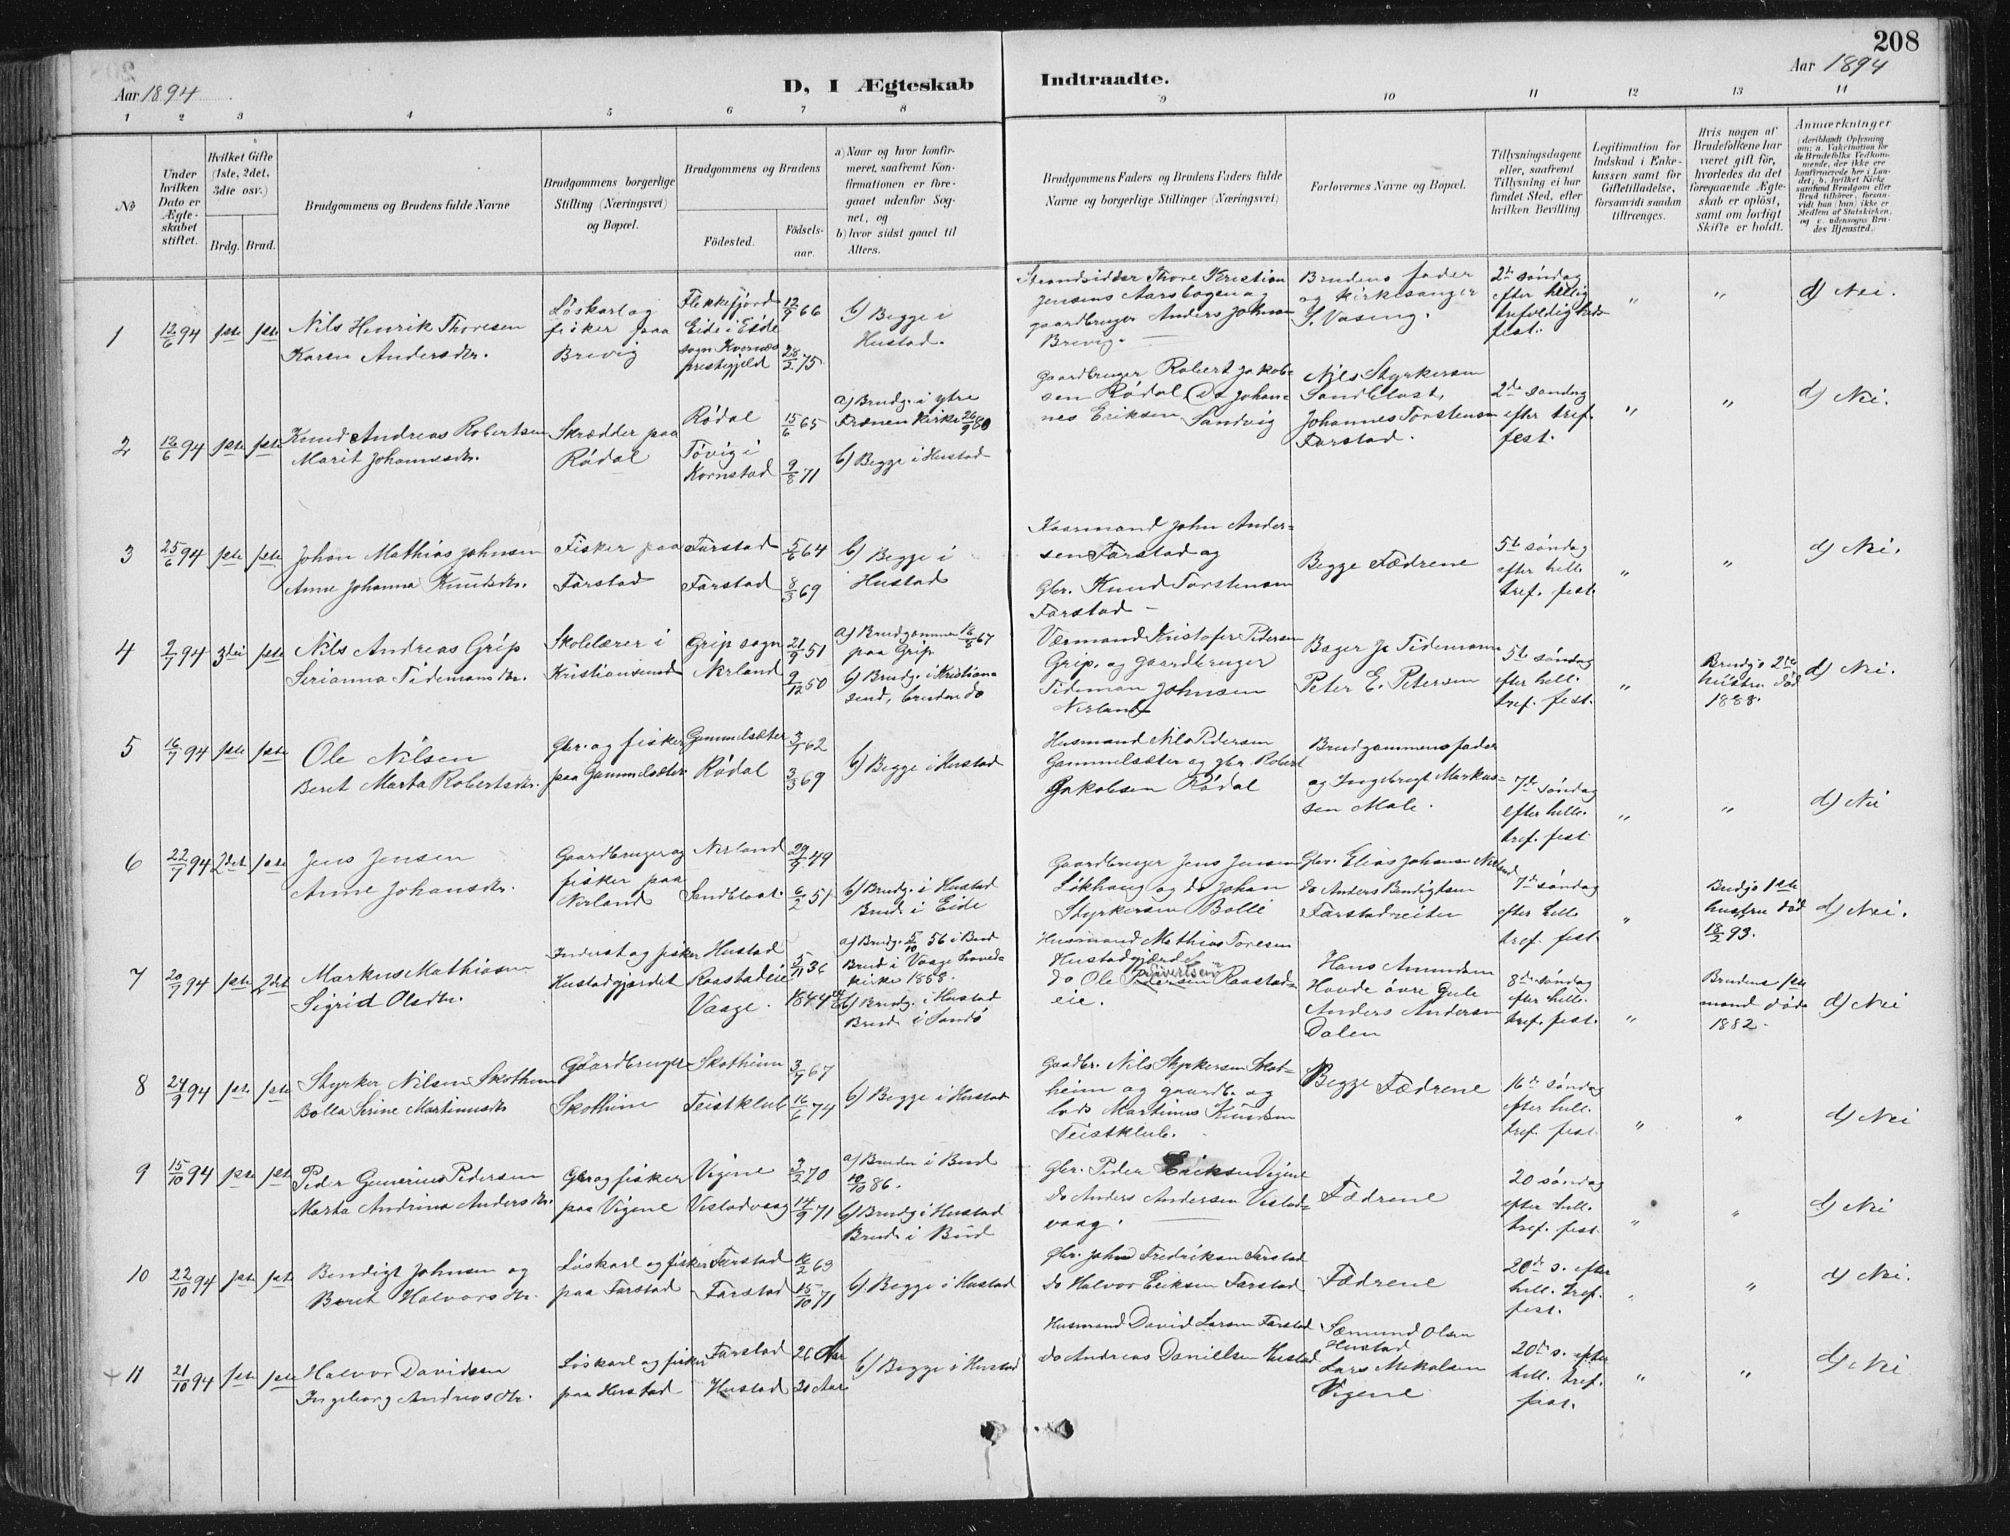 208
Aar 1894
D, I Ægteskab Indtraadte.
Aar 1894
1 2 3 4 5 6 7 8 9 10 11 12 13 14
No
Under hvilken Dato er Ægteskabet stiftet.
Hvilket Gifte (1ste, 2det, 3die osv.)
Brdg. Brud.
Brudgommens og Brudens fulde Navne
Brudgommens borgerlige Stilling (Næringsvei) og Bopæl.
Brudgommens og Brudens
Födested. Födselsaar.
a) Naar og hvor konfirmeret, saafremt Konfirmationen er foregaaet udenfor Sognet, og
b) hvor sidst gaaet til Alters.
Brudgommens Faders og Brudens Faders fulde Navne og borgerlige Stillinger (Næringsvei)
Forlovernes Navne og Bopæl.
Tillysningsdagene eller, saafremt Tillysning ei har fundet Sted, efter hvilken Bevilling
Legitimation for Indskud i Enkekassen samt for Giftetilladelse, forsaavidt saadan tiltrænges.
Hvis nogen af Brudefolkene har været gift för, hvorledes da det foregaaende Ægteskab er oplöst, samt om lovligt Skifte er holdt.
Anmærkninger
1 12/6 94 1ste 1ste
Nils Henrik Thoresen
Karen Andersdtr.
Löskarl og
fisker paa
Brevig
Flekkefjord 12/9 66
Eide i Eide
sogn Kvernæs
prestegjeld 28/2 75
b) Begge i
Hustad.
Strandsidder Thore Kristian
Jensens Aarsbogen og
gaardbruger Anders Johnsen
Brevig.
Brudens fader
og kirkesanger
S. Vaseng.
2den söndag
efter hellig
trefoldigheds
fest.
" " d) Nei.
2 12/6 94 1ste 1ste
Knud Andreas Robertsen
Marit Johannesdtr.
Skrædder paa
Rödal
Rödal 15/6 65
Tövig i
Kornstad 9/8 71
a) Brudg. i ytre
Frænen kirke 26/9 80
b) Begge i Hustad
Gaardbruger Robert Jakob-
sen Rödal (Do Johan-
nes Eriksen Sandvig
Nils Styrkersen
Sandblast,
Johannes Torstensen
Farstad.
2den söndag
efter tref.
fest.
" " d) Nei.
3 25/6 94 1ste 1ste
Johan Mathias Johnsen
Anne Johanna Knudsdtr.
Fisker paa
Farstad
Farstad 5/6 64
Farstad 8/3 69
b) Begge i
Hustad
Kaarmand John Ander-
sen Farstad og
Gbr. Knud Torstensen
Farstad
Begge Fædrene
5te söndag
efter hell.
tref. fest
" " d) Nei.
4 2/7 94 3die 1ste
Nils Andreas Grip
Serianna Tidemansdtr.
Skolelærer i
Kristiansund
Grip sogn 21/9 51
Nerland 9/12 50
a) Brudgommen 16/6 67
paa Grip
b) Brudg. i Kristian-
sund, bruden do
Værmand Kristofer Pedersen
Grip. og gaardbruger
Tideman Johnsen
Nerland
Bager J. Tidemann
Peter E. Petersen
5te söndag
efter hell.
tref. fest.
"
Brudgs 2den
hustru död
1888.
d) Nei.
5 16/7 94 1ste 1ste
Ole Nilsen
Beret Marta Robertsdtr.
Gbr. og fisker
paa Gammelsæter
Gammelsæter 3/5 62
Rödal 3/3 69
b) Begge i Hustad
Husmand Nils Pedersen
Gammelsæter og gbr. Robert
Jakobsen Rödal
Brudgommens fader
og Ingebregt Markus-
sen Male.
7de söndag
efter hell.
tref. fest
" " d) Nei
6 22/7 94 2det 1ste
Jens Jensen
Anne Johansdtr.
Gaardbruger og
fisker paa
Nerland
Nerland 29/9 49
Sandblaat 6/2 51
b) Brudg. i Hustad
Brud. i Eide
Gaardbruger Jens Jensen
Lökhaug og do Johan
Styrkersen Bolli
Gbr. Elias Johansen Nerland
do Anders Bendigtsen
Farstadreiten
7de söndag
efter hell.
tref. fest.
"
Brudgs 1ste
hustru död
18/2 93.
d) Nei.
7 20/7 94 1ste 2det
Markus Mathiasen
Sigrid Olsdtr.
Inderst og fisker
Hustadgjærdet
Hustad 5/11 36
Raastadeie
Vaage. 1844
a) Brudg. 5/10 56 i Bud
Brud i Vaage hoved-
kirke 1858.
b) Brudg. i Hustad
Brud i Sandö
Husmand Mathias Toresen
Hustadgjærdet
do Ole Sivertsen Raastad-
eie.
Hans Amundsen
Hovde övre Gule
Anders Andersen
Dalen
8de söndag
efter hell.
tref. fest.
"
Brudens 1ste
mand döde
1882.
d) Nei
8 24/9 94 1ste 1ste
Styrker Nilsen Skotheim
Bolla Serine Martinusdtr
Gaardbruger
Skotheim
Skotheim 3/7 67
Teistklub 16/6 74
b) Begge i Hustad
Gaardbr. Nils Styrkersen Skot-
heim og gaardb. og
lods Martinus Knudsen
Teistklub.
Begge Fædrene
16de söndag
efter hell.
tref. fest
" " d) Nei
9 15/10 94 1ste 1ste
Peder Gunerius Pedersen
Marta Andrina Andersdtr.
Gbr og fisker
paa Vigene
Vigene 3/2 70
Vestadvaag 14/9 71
a) Bruden i Bud
10/10 86.
b) Brudg i Hustad
Brud. i Bud
Gbr. Peder Eriksen Vigene
do Anders Andersen Vestad-
vaag.
Fædrene
20 söndag
efter hell.
tref. fest
" " d) Nei
10 22/10 94 1ste 1ste
Bendigt Johnsen og
Beret Halvorsdtr.
Löskarl og fisker
paa Farstad
Farstad 16/2 63
Farstad 15/10 71
b) Begge i Hustad
Gbr. John Fredriksen Farstad
do Halvor Eriksen Farstad
Fædrene
20de s. efter
hell. tref.
fest.
" " d) Nei.
11 21/10 94 1ste 1ste
Halvor Davidsen
Ingeborg Andreasdtr.
Löskarl og fisker
paa Hustad
Farstad 26 Aar
Hustad 20 Aar
b) Begge i Hustad
Husmand David Larsen Farstad
do Andreas Danielsen Hustad
Sæmund Olsen
Hustad
Lars Mikalsen
Vigene
20de s. efter
hell. tref.
fest.
" " d) Nei